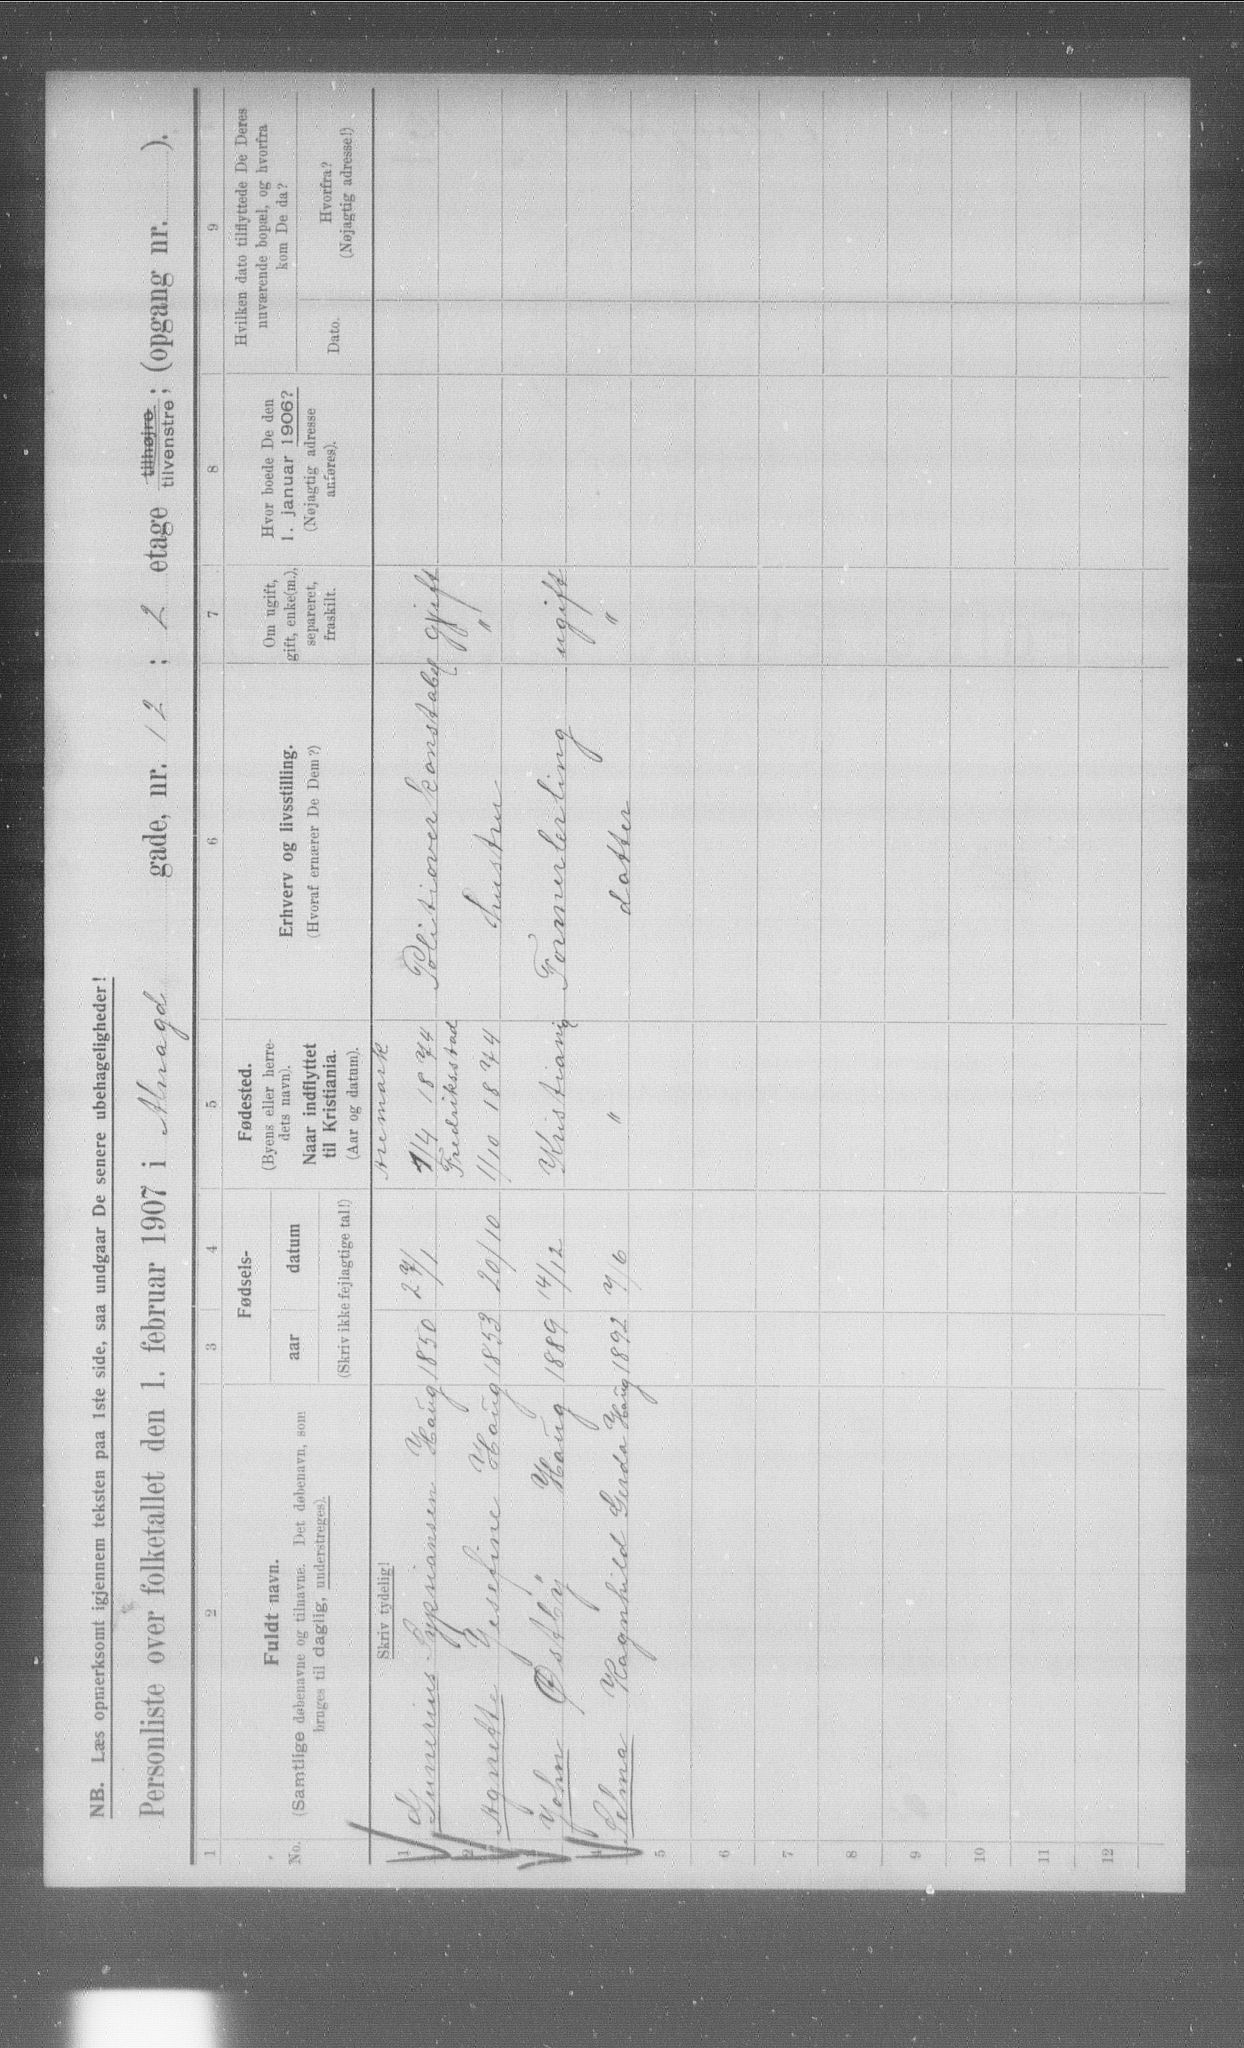 NB. Læs opmerksomt igjennem teksten paa 1ste side, saa undgaar De senere ubehageligheder!
Personliste over folketallet den 1. februar 1907 i Almagd gade, nr. 12 ; 2 etage tilhøjre tilvenstre ; (opgang nr. ).
1 2 3 4 5 6 7 8 9
No.
Fuldt navn.
(Samtlige døbenavne og tilnavne. Det døbenavn, som
bruges til daglig, understreges).
Fødsels-
aar datum
(Skriv ikke fejlagtige tal!)
Fødested.
(Byens eller herre-
dets navn).
Naar indflyttet
til Kristiania.
(Aar og datum).
Erhverv og livsstilling.
(Hvoraf ernærer De Dem?)
Om ugift,
gift, enke(m.),
separeret,
fraskilt.
Hvor boede De den
1. januar 1906?
(Nøjagtig adresse
anføres).
Hvilken dato tilflyttede De Deres
nuværende bopæl, og hvorfra
kom De da?
Dato.
Hvorfra?
(Nøjagtig adresse!)
Skriv tydelig!
Aremark
1 Haug 1850 27/1 1/4 1874 Politioverkonstabel gift
Fredriksstad
2 Agnette Josefine Haug 1853 20/10 1/10 1874 hustru "
3 John Østby Haug 1889 14/12 Kristiania Formerlerling ugift
4 Selma Ragnhild Gerda Haug 1892 7/6 " datter "
5
6
7
8
9
10
11
12